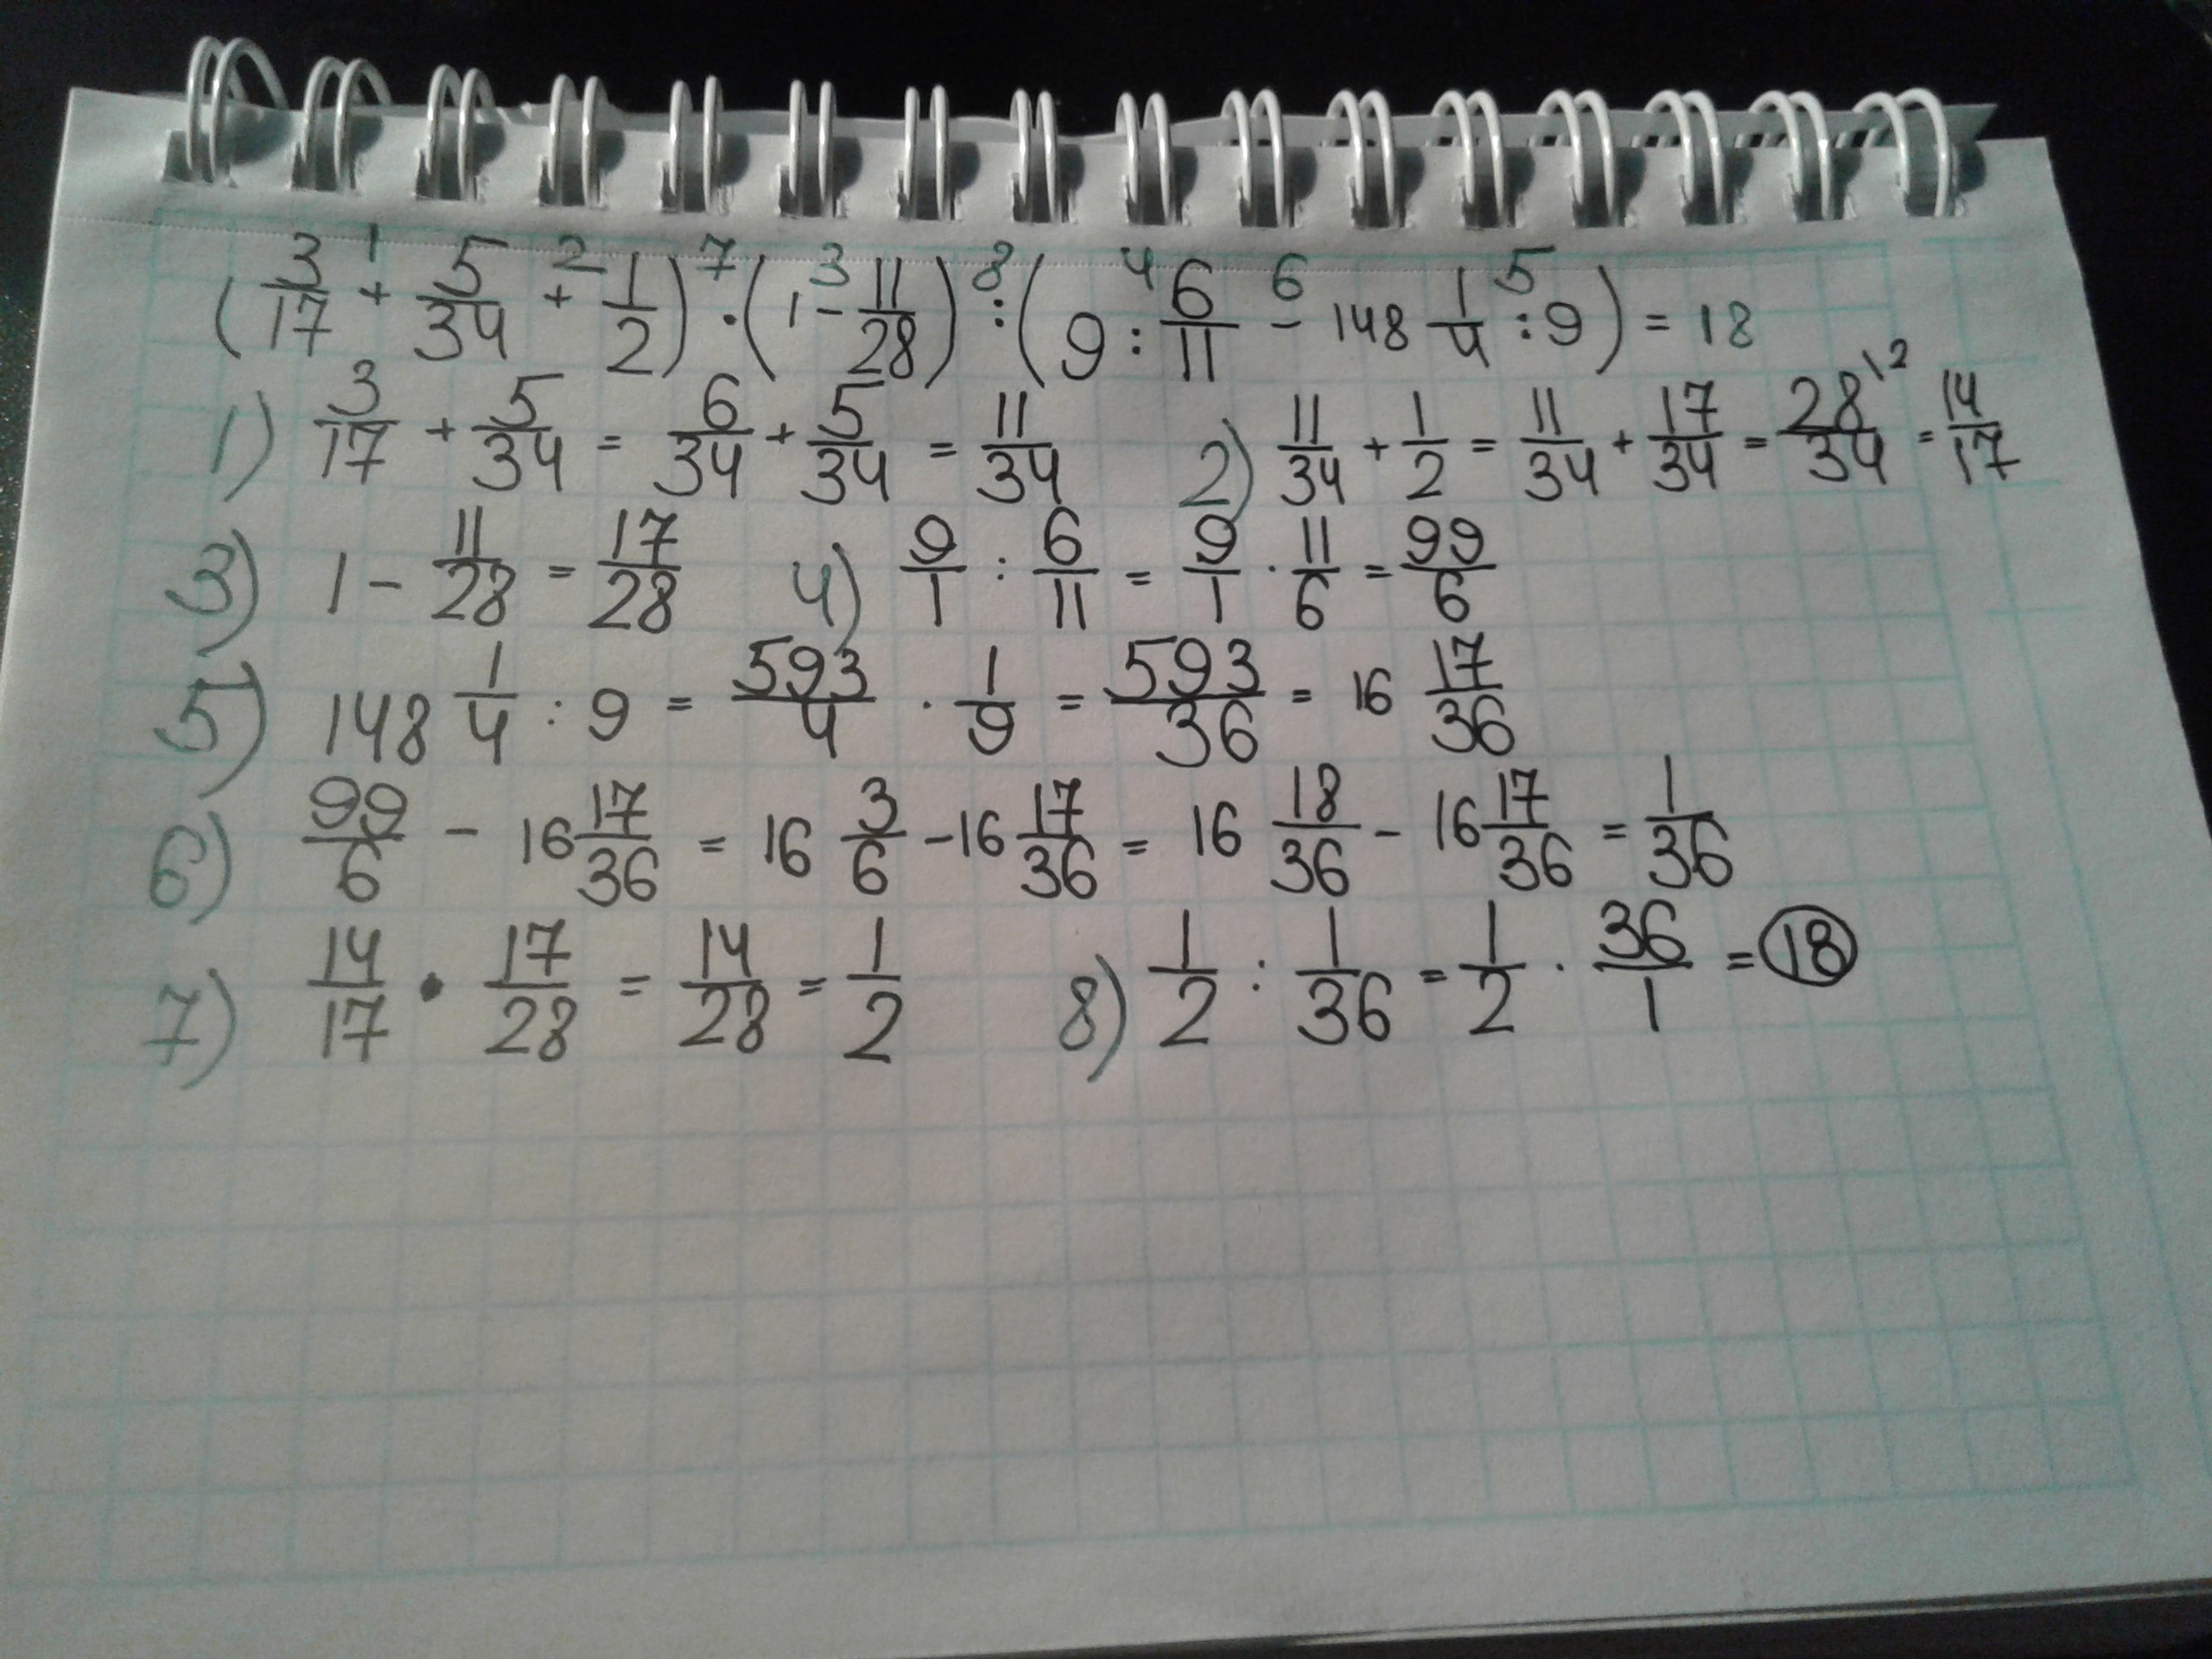 (3/17 +¹ 5/34 +² 1/2) ·⁷ (1 -³ 11/28) :⁸ (9 :⁴ 6/11 -⁶ 148 1/4 :⁵ 9) = 18
1) 3/17 + 5/34 = 6/34 + 5/34 = 11/34 2) 11/34 + 1/2 = 11/34 + 17/34 = 28/34 \2 = 14/17
3) 1 - 11/28 = 17/28 4) 9/1 : 6/11 = 9/1 · 11/6 = 99/6
5) 148 1/4 : 9 = 593/4 · 1/9 = 593/36 = 16 17/36
6) 99/6 - 16 17/36 = 16 3/6 - 16 17/36 = 16 18/36 - 16 17/36 = 1/36
7) 14/17 · 17/28 = 14/28 = 1/2 8) 1/2 : 1/36 = 1/2 · 36/1 = 18